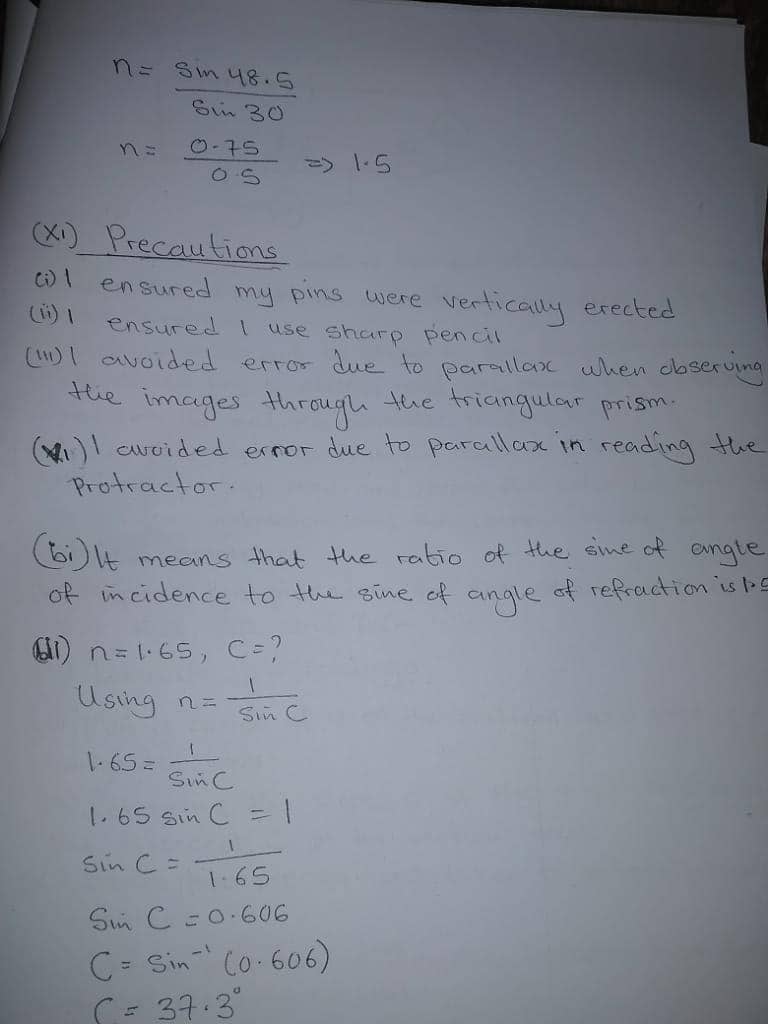 n = Sin 48.5
Sin 30
n = 0.75
0.5 => 1.5
(XI) Precautions
(i) I ensured my pins were vertically erected
(ii) I ensured I use sharp pencil
(III) I avoided error due to parallax when observing
the images through the triangular prism.
I avoided error due to parallax in reading the
Protractor.
(bi) It means that the ratio of the sine of angle
of incidence to the sine of angle of refraction is
n = 1.65, C = ?
Using n = 1
Sin C
1.65 = 1
Sin C
1.65 sin C = 1
Sin C = 1
1.65
Sin C = 0.606
C = Sin⁻¹ (0.606)
C = 37.3°